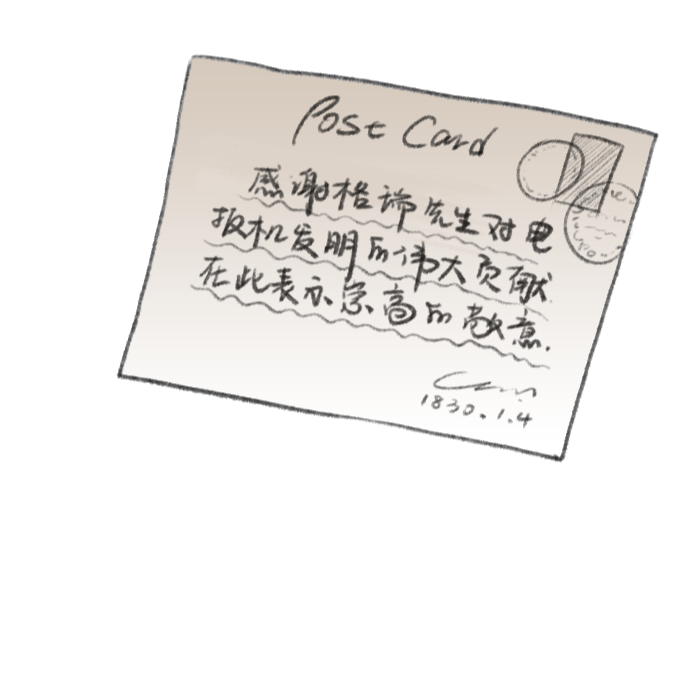 Post Card
感谢格瑞先生对电
报机发明的伟大贡献
在此表示崇高的敬意.
1830.1.4